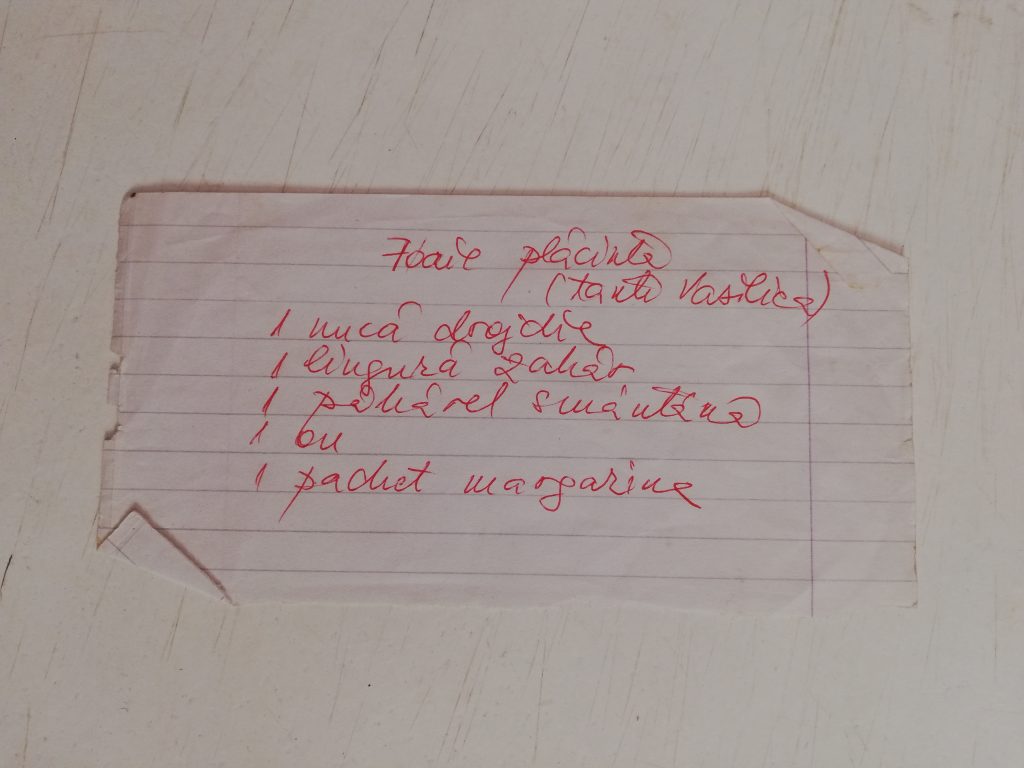 Foaie plăcintă
(tanti Vasilica)
1 nucă drojdie
1 lingură zahăr
1 păhărel smântână
1 ou
1 pachet margarina